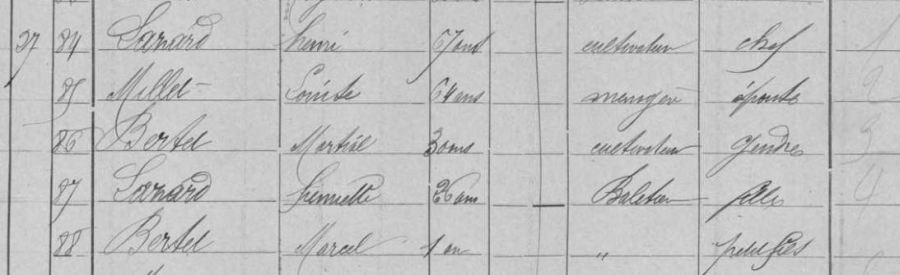 27 84 Sanard henri 67 ans cultivateur chef 1
85 Millet Louise 64 ans menagère épouse 2
86 Bertel Martial 30 ans cultivateur gendre 3
87 Sanard henriette 26 ans fille 4
88 Bertel Marcel 1 an " petit fils